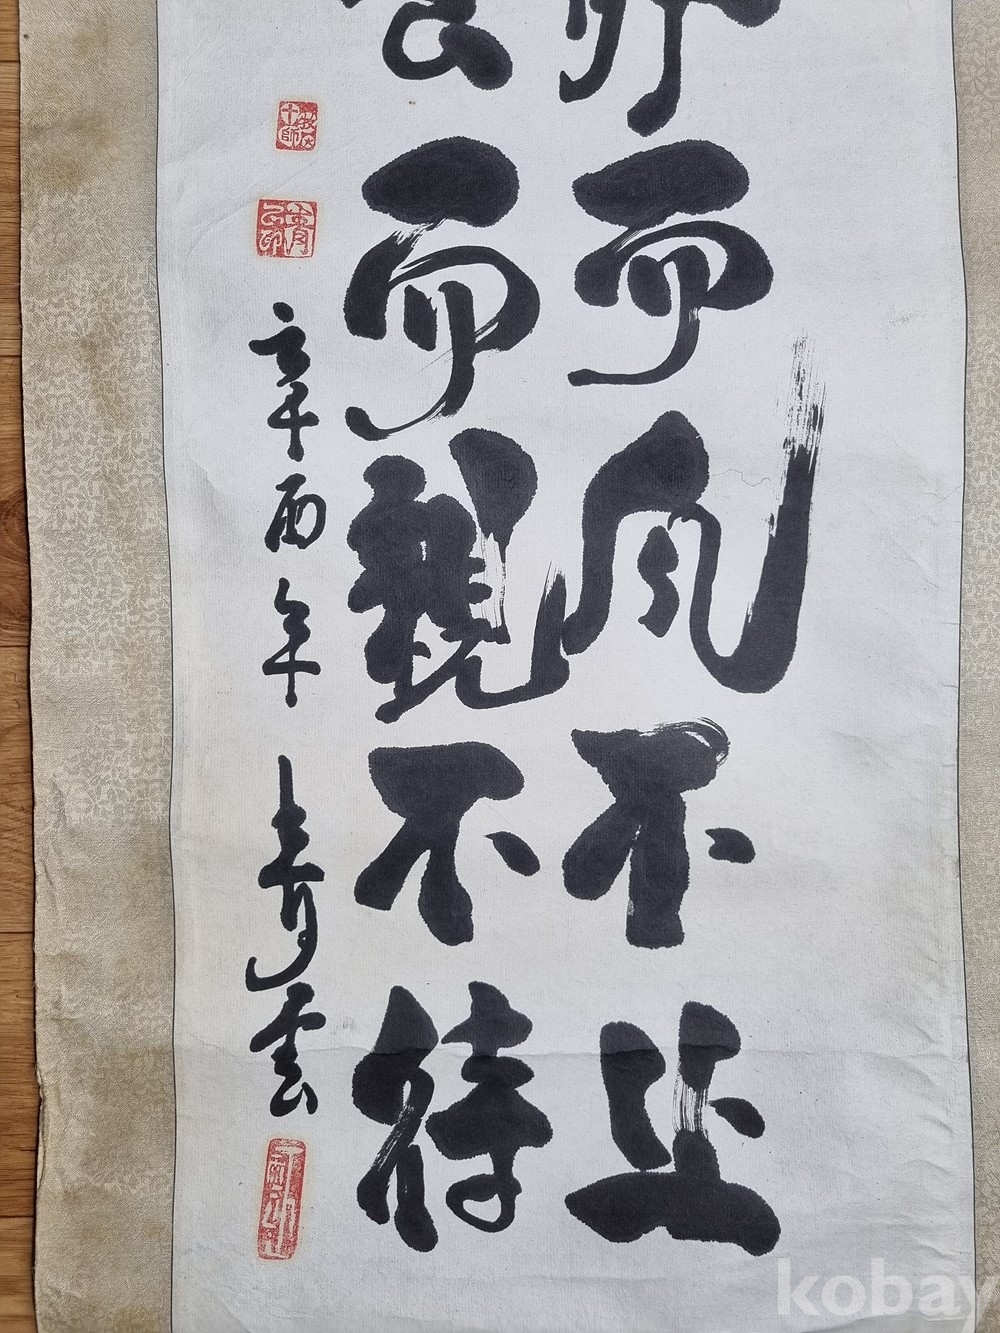 而風不止
而親不待
辛酉年 青雲
kobay